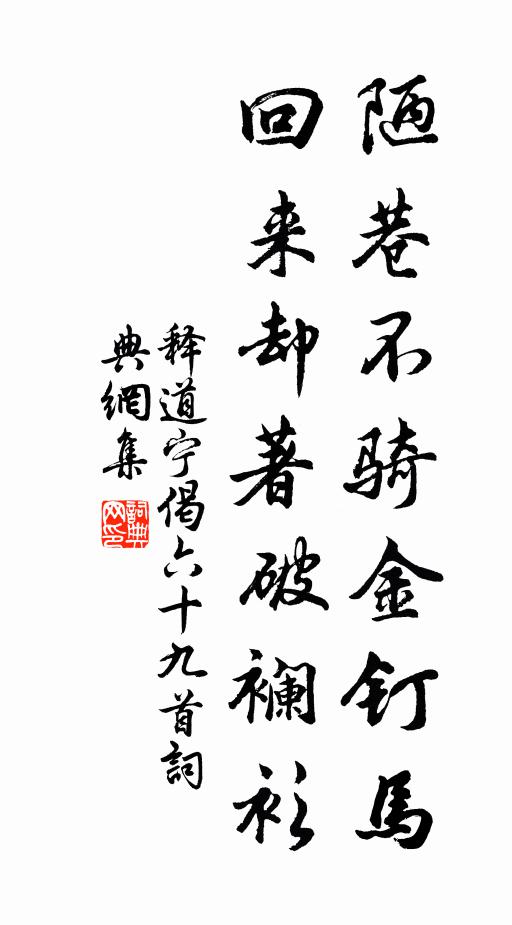 陋巷不骑金钉馬
回来却著破襕衫
释道宁偈六十九首詞
典網集
詞典
网印